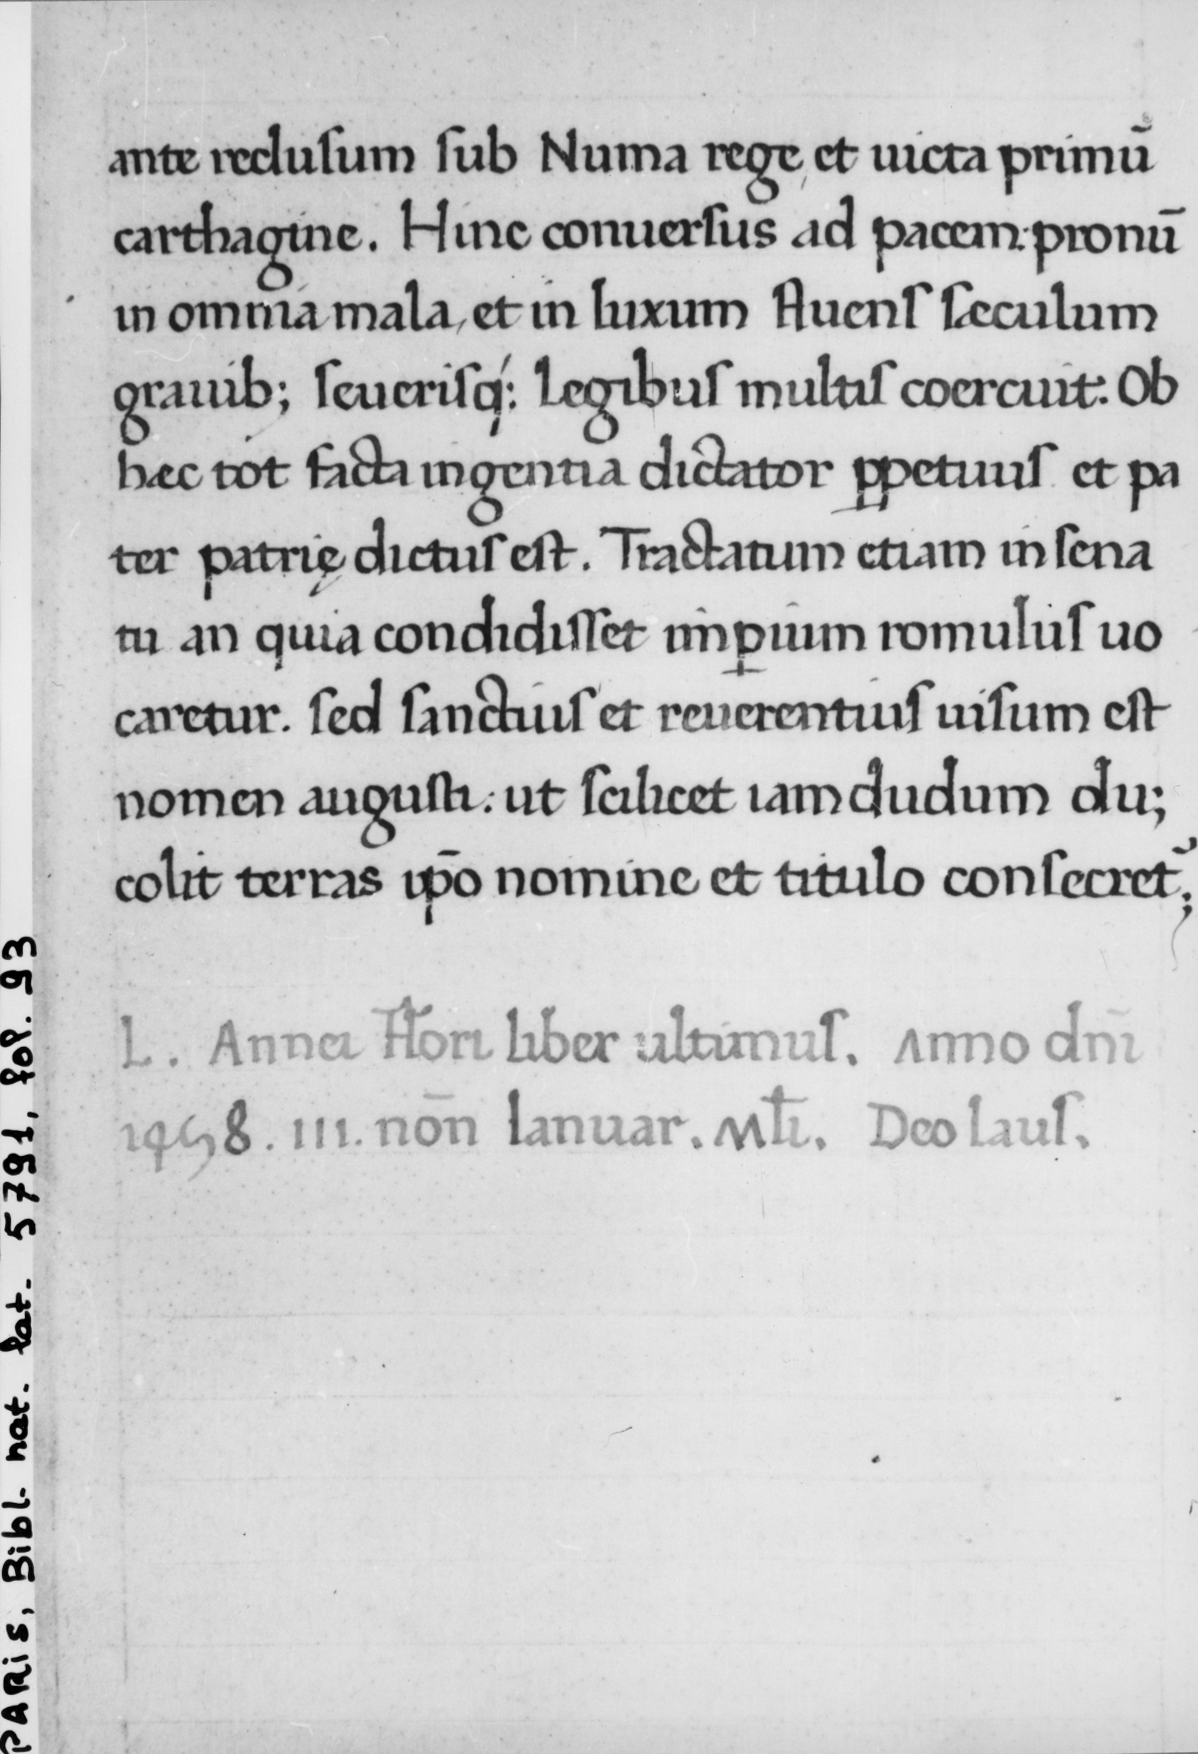 ante reclusum sub Numa rege, et uicta primū
carthagine. Hinc conuersus ad pacem: pronū
in omnia mala, et in luxum fluens sæculum
grauib; seuerisq;: legibus multis coercuit: Ob
hæc tot facta ingentia dictator ꝑpetuus et pa
ter patrię dictus est. Tractatum etiam in sena
tu an quia condidisset imꝑium romulus uo
caretur. sed sanctius et reuerentius uisum est
nomen augusti: ut scilicet iam dudum du;
colit terras ip̄o nomine et titulo consecret᷑;
L. Annei Flori liber ultimus. Anno dn̄i
1458. III. nōn Ianuar. Młi. Deo laus.
PARIS, Bibl. nat. lat. 5791, fol. 93